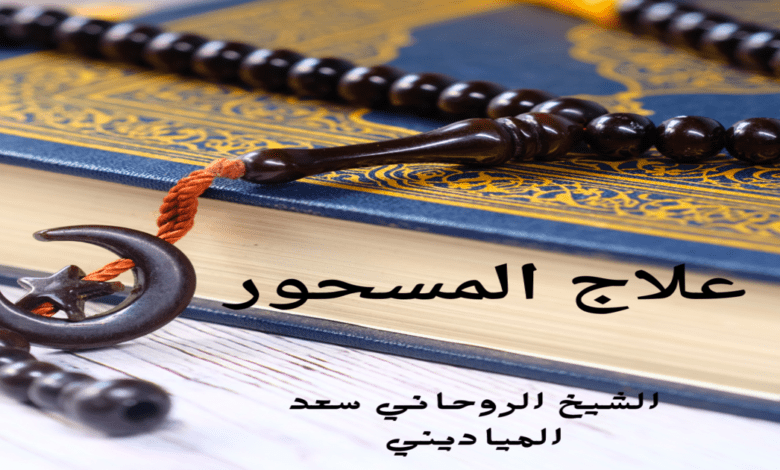 علاج المسحور
الشيخ الروحاني سعد
المياديني